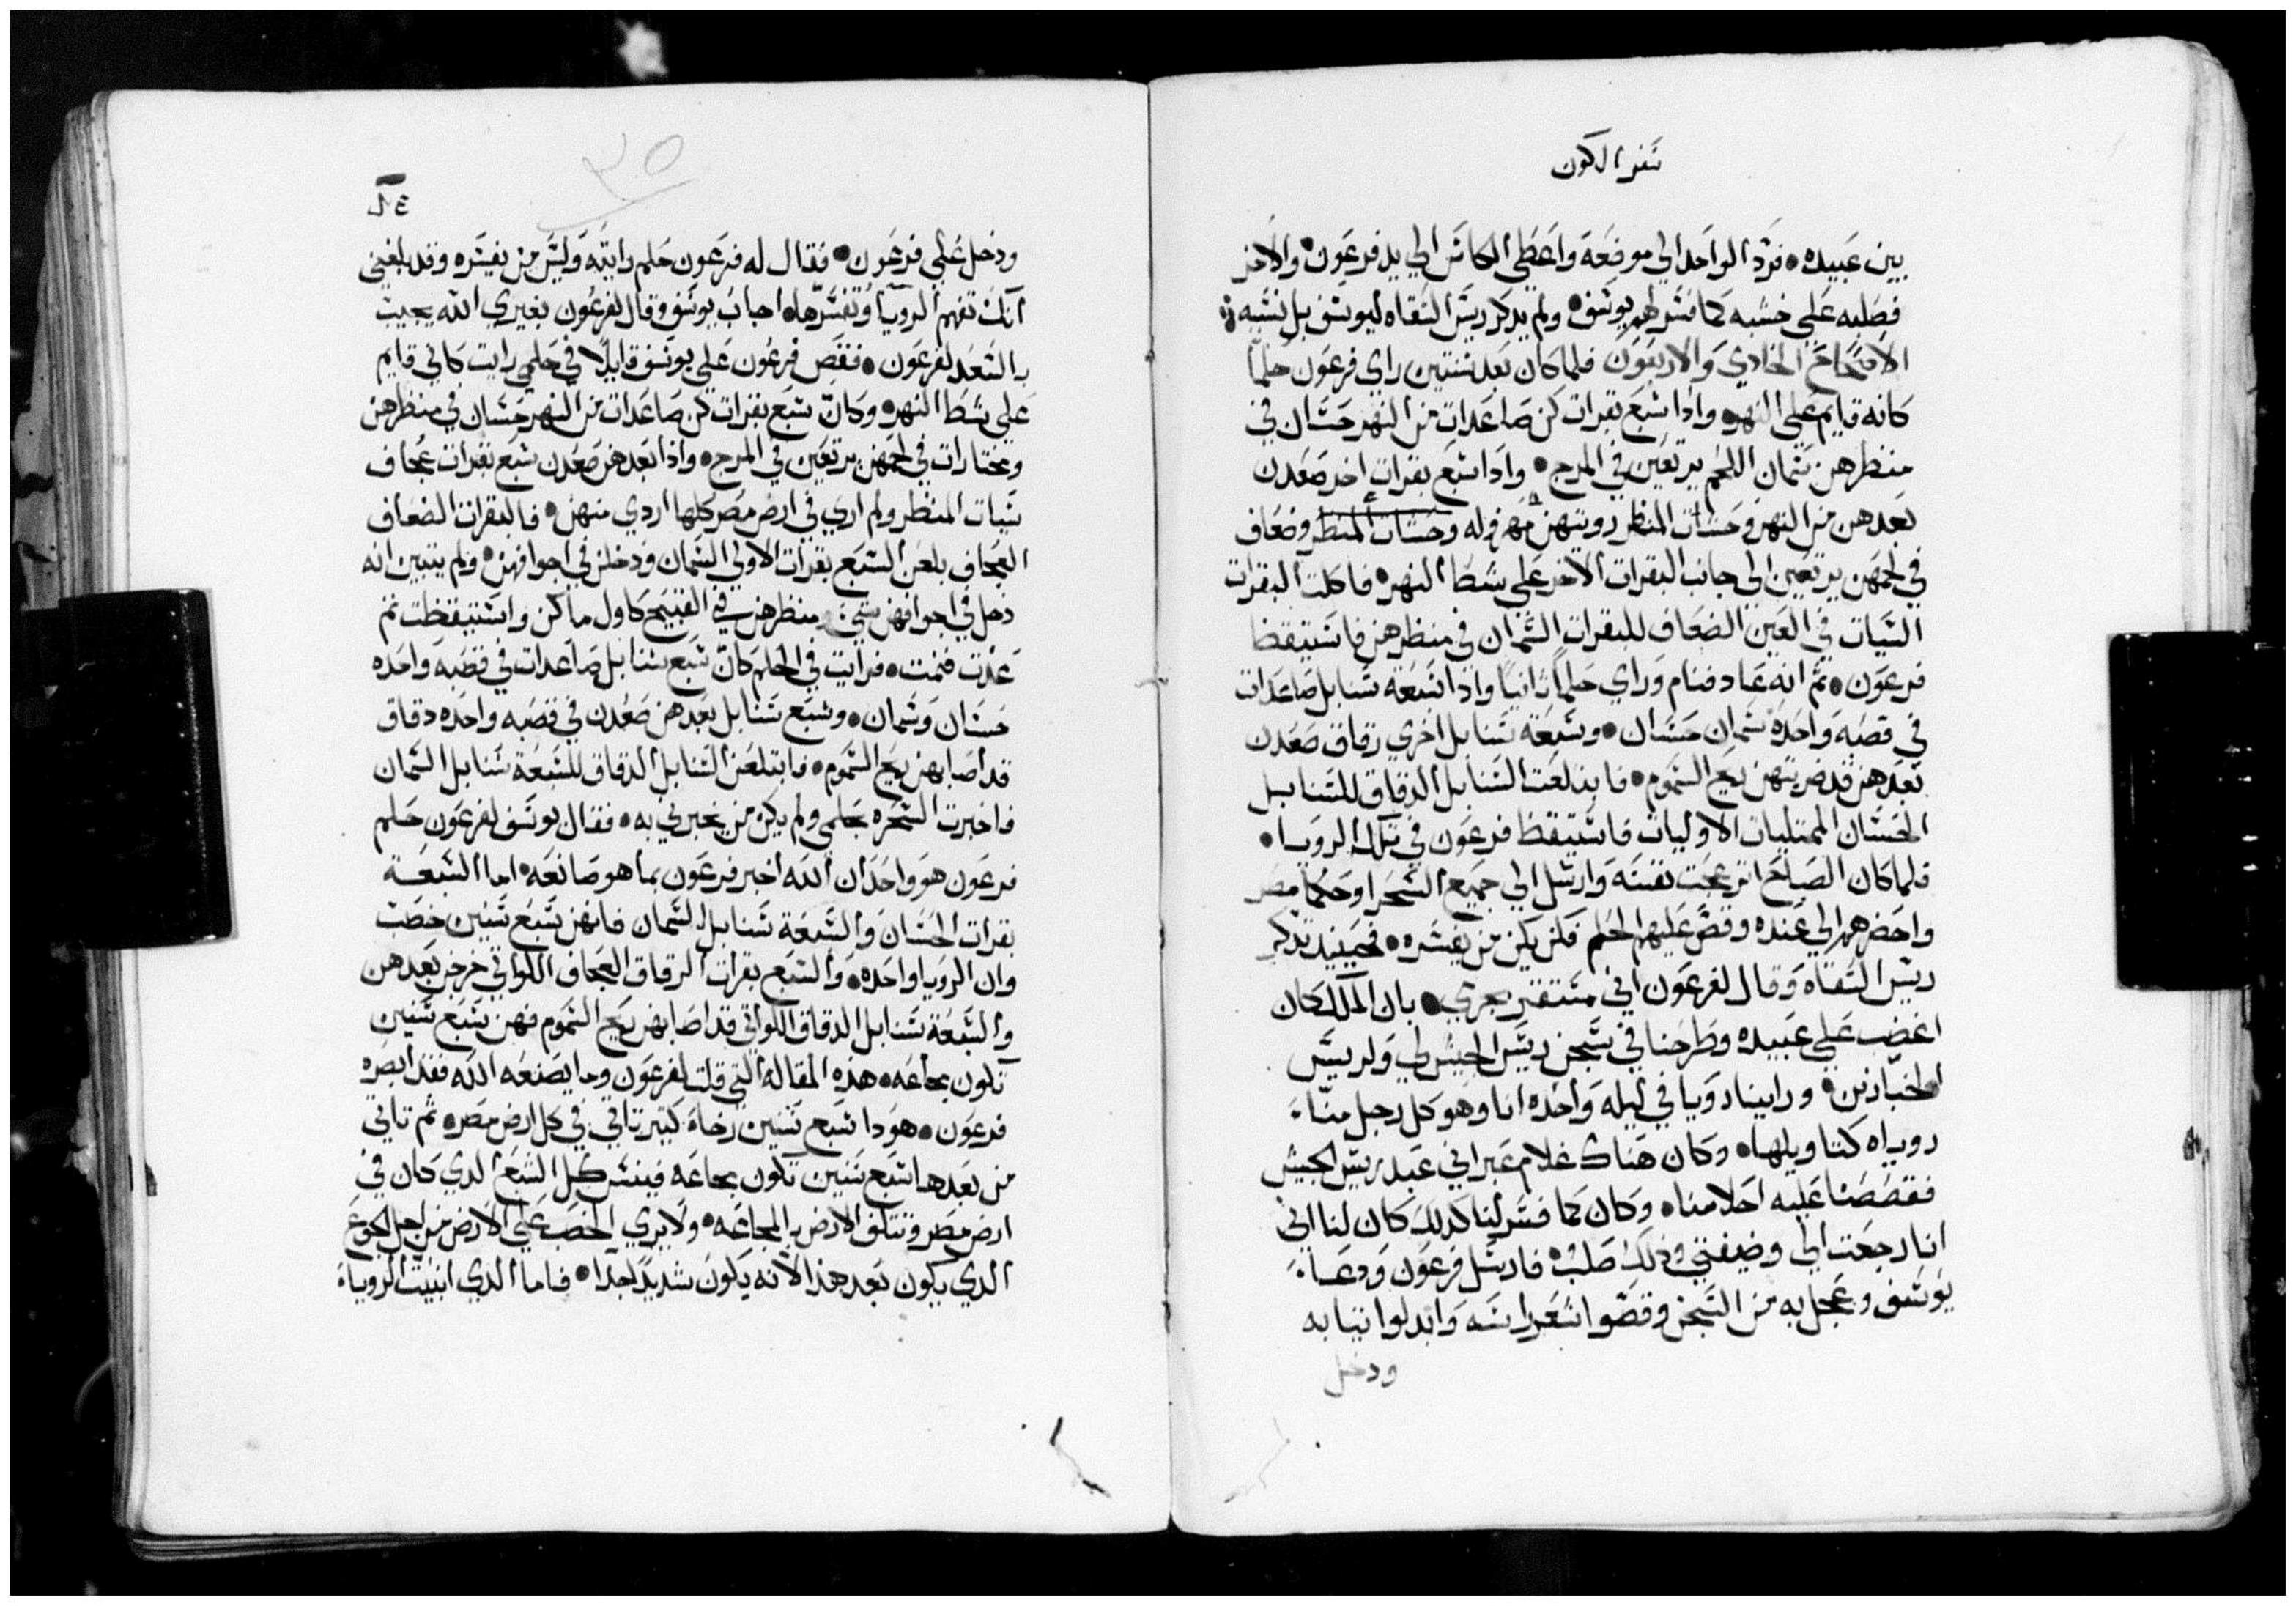 سفر الكون
بين عبيده • فرد الواحد الي موضعه واعطي الكاس الي يد فرعون • والاخر
فصلبه علي خشبه كما فسر لهم يوسف • ولم يدكر ريس السقاه ليوسف بل نسيه
الاصحاح الحادي والاربعون فلما كان بعد سنتين راي فرعون حلماً
كانه قايم علي النهر • واذا سبع بقرات كن صاعدات من النهر حسان في
منظرهن سمان اللحم يرتعين في المرج • واذا سبع بقرات اخر صعدن
بعدهن من النهر وحشات المنظر وضعاف
في لحمهن يرتعين الي جانب البقرات الاخر علي شط النهر • فاكلت البقرات
السيات في العين الضعاف للبقرات السمان في منظرهن فاستيقظ
فرعون • ثم انه عاد فنام وراي حلماً ثانياً واذا سبعة سنابل صاعدات
في قصبه واحده سمان حسان • وسبعة سنابل اخري رقاق صعدن
بعدهن قد ضربتهن ريح السموم • فابتلعت السنابل الدقاق للسنابل
الحسان الممتليات الاوليات فاستيقظ فرعون في تلك الرويا •
فلما كان الصباح انزعجت نفسه وارسل الي جميع السحرا وحكما مصر
واحضرهم الي عنده وقص عليهم الحلم فلم يكن من يفسره • فحينيد تدكر
ريس السقاه وقال لفرعون اني مستقر بجرمي • بان الملك كان
اغضب علي عبيده وطرحنا في سجن ريس الجيش لي ولريس
الخبازين • وراينا رويا في ليله واحده انا وهو كل رجل منا
روياه كتاويلها • وكان هناك غلام عبراني عبد ريس الجيش
فقصصنا عليه احلامنا • وكان كما فسر لنا كدلك كان لنا اني
انا رجعت الي وضيفتي وذلك صلب • فارسل فرعون ودعا
يوسف وعجل به من السجن وقصوا شعر راسه وابدلوا ثيابه
ودخل
٣٥
٣٤
ودخل علي فرعون • فقال له فرعون حلم رايته وليس من يفسره وقد بلغني
انك تفهم الرويا وتفسرها • اجاب يوسف وقال لفرعون بغيري الله يجيب
بالسعد لفرعون • فقص فرعون علي يوسف قايلاً في حلمي رايت كاني قايم
علي شط النهر • وكان سبع بقرات كن صاعدات من النهر حسان في منظرهن
ومختارات في لحمهن يرتعين في المرج • واذا بعدهن صعدن سبع بقرات عجاف
سيات المنظر ولم اري في ارض مصر كلها اردي منهن • فالبقرات الضعاف
العجاف بلعن السبع بقرات الاولي السمان ودخلن في اجوافهن • ولم يتبين انه
دخل في اجوافهن شي ومنظرهن في القبيح كاول ما كن واستيقظت ثم
عدت فنمت • فرايت في الحلم كان سبع سنابل صاعدات في قصبه واحده
حسان وسمان • وسبع سنابل بعدهن صعدن في قصبه واحده دقاق
قد اصابهن ريح السموم • فابتلعن السنابل الدقاق للسبعة سنابل السمان
فاخبرت السحره بحلمي ولم يكن من يخبرني به • فقال يوسف لفرعون حلم
فرعون هو واحد ان الله اخبر فرعون بما هو صانعه • اما السبعة
بقرات الحسان والسبعة سنابل السمان فانهن سبع سنين خصب
وان الرويا واحده • والسبع بقرات الرقاق العجاف اللواتي خرجن بعدهن
والسبعة سنابل الدقاق اللواتي قد اصابهن ريح السموم فهن سبع سنين
تكون مجاعه • هذه المقالة التي قلت لفرعون وما يصنعه الله فقد ابصره
فرعون • هودا سبع سنين رخاء كبير تاتي في كل ارض مصر • ثم تاتي
من بعدها سبع سنين تكون مجاعه فينسي كل الشبع الدي كان في
ارض مصر وتتلف الارض بالمجاعه • ولا يري الخصب علي الارض من اجل الجوع
الدي يكون بعد هذا لانه يكون شديداً جداً • فاما الدي اثنيت الرويا